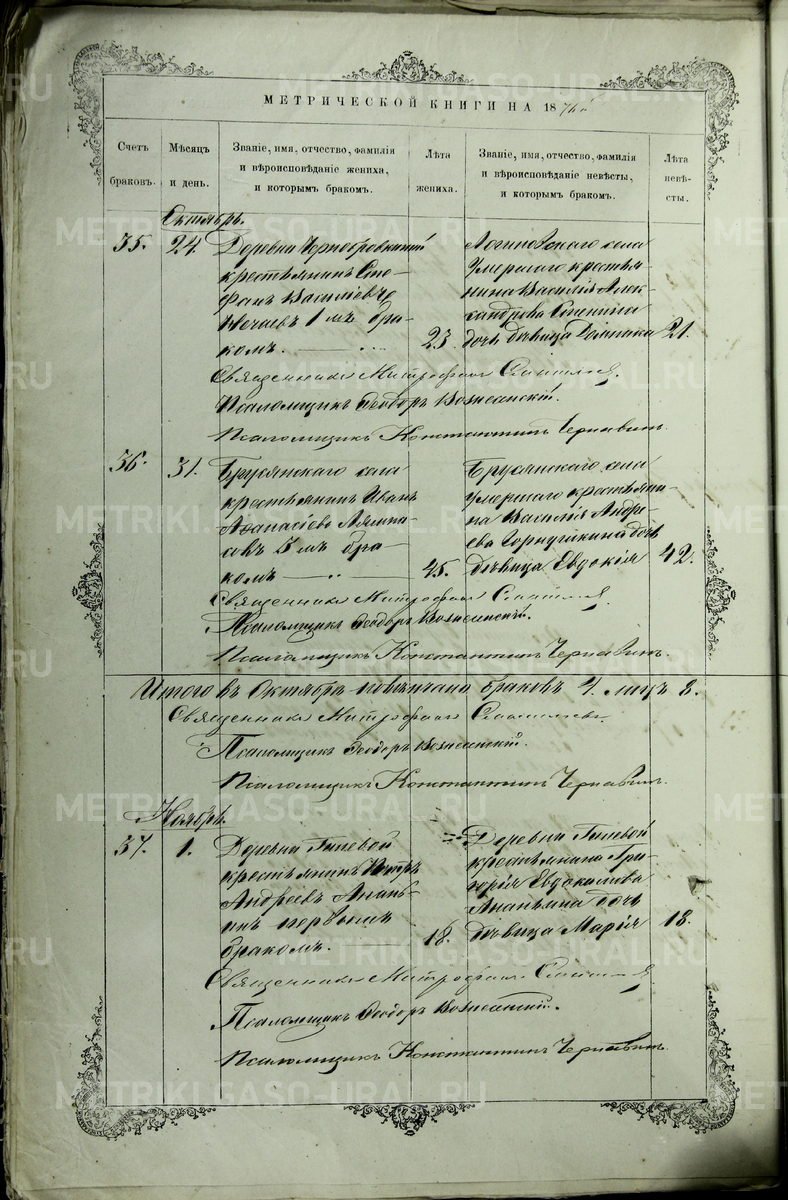 МЕТРИЧЕСКОЙ КНИГИ НА 18
Счетъ браковъ.
Мѣсяцъ и день.
Званіе, имя, отчество, фамилія и вѣроисповѣданіе жениха, и которымъ бракомъ.
Лѣта жениха.
Званіе, имя, отчество, фамилія и вѣроисповѣданіе невѣсты, и которымъ бракомъ.
Лѣта невѣсты.
Октябрь.
35.
24.
Деревни
крестьянинъ Сте-
фанъ Василіевъ
Нечаевъ 1 мъ бра-
комъ.
23.
Логиновскаго села
умершаго крестья-
нина Василія Алек-
сандрова
дочь дѣвица
21.
Священникъ Митрофанъ
Псаломщикъ Ѳеодоръ Вознесенскій.
Псаломщикъ Константинъ Чернавинъ.
36.
31.
Брусянскаго села
крестьянинъ Иванъ
Аѳанасіевъ
бра-
комъ
45.
Брусянскаго села
умершаго крестьяни-
на Василія Андре-
ева дочь
дѣвица Евдокія
42.
Священникъ Митрофанъ
Псаломщикъ Ѳеодоръ Вознесенскій.
Псаломщикъ Константинъ Чернавинъ.
Итого въ Октябрѣ повѣнчано браковъ 4. лицъ 8.
Священникъ Митрофанъ
Псаломщикъ Ѳеодоръ Вознесенскій.
Псаломщикъ Константинъ Чернавинъ.
Ноябрь.
37.
1.
Деревни Гилевой
крестьянинъ Петръ
Андреевъ Анань-
инъ первымъ
бракомъ.
18.
Деревни Гилевой
крестьянина Гри-
горія Евдокимова
Ананьина дочь
дѣвица Марія
18.
Священникъ Митрофанъ
Псаломщикъ Ѳеодоръ Вознесенскій.
Псаломщикъ Константинъ Чернавинъ.
METRIKI.GASO-URAL.RU